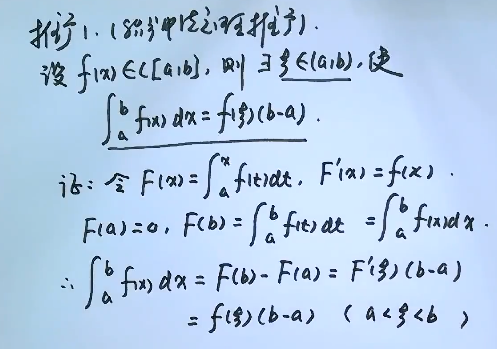 推广1.(积分中值定理推广).
设 f(x)∈C[a,b], 则 ∃ξ∈(a,b), 使
∫_a^b f(x)dx = f(ξ)(b-a).
证: 令 F(x)=∫_a^x f(t)dt, F'(x)=f(x).
F(a)=0, F(b)=∫_a^b f(t)dt =∫_a^b f(x)dx.
∴ ∫_a^b f(x)dx = F(b)-F(a) = F'(ξ)(b-a)
= f(ξ)(b-a) (a<ξ<b)